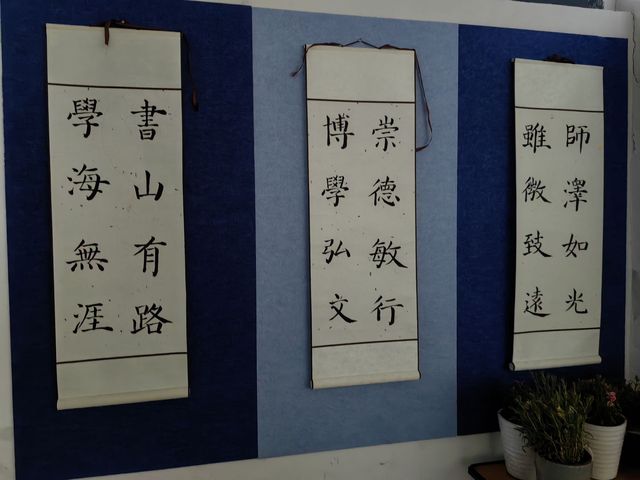 書山有路
學海無涯
崇德敏行
博學弘文
師澤如光
雖微致遠